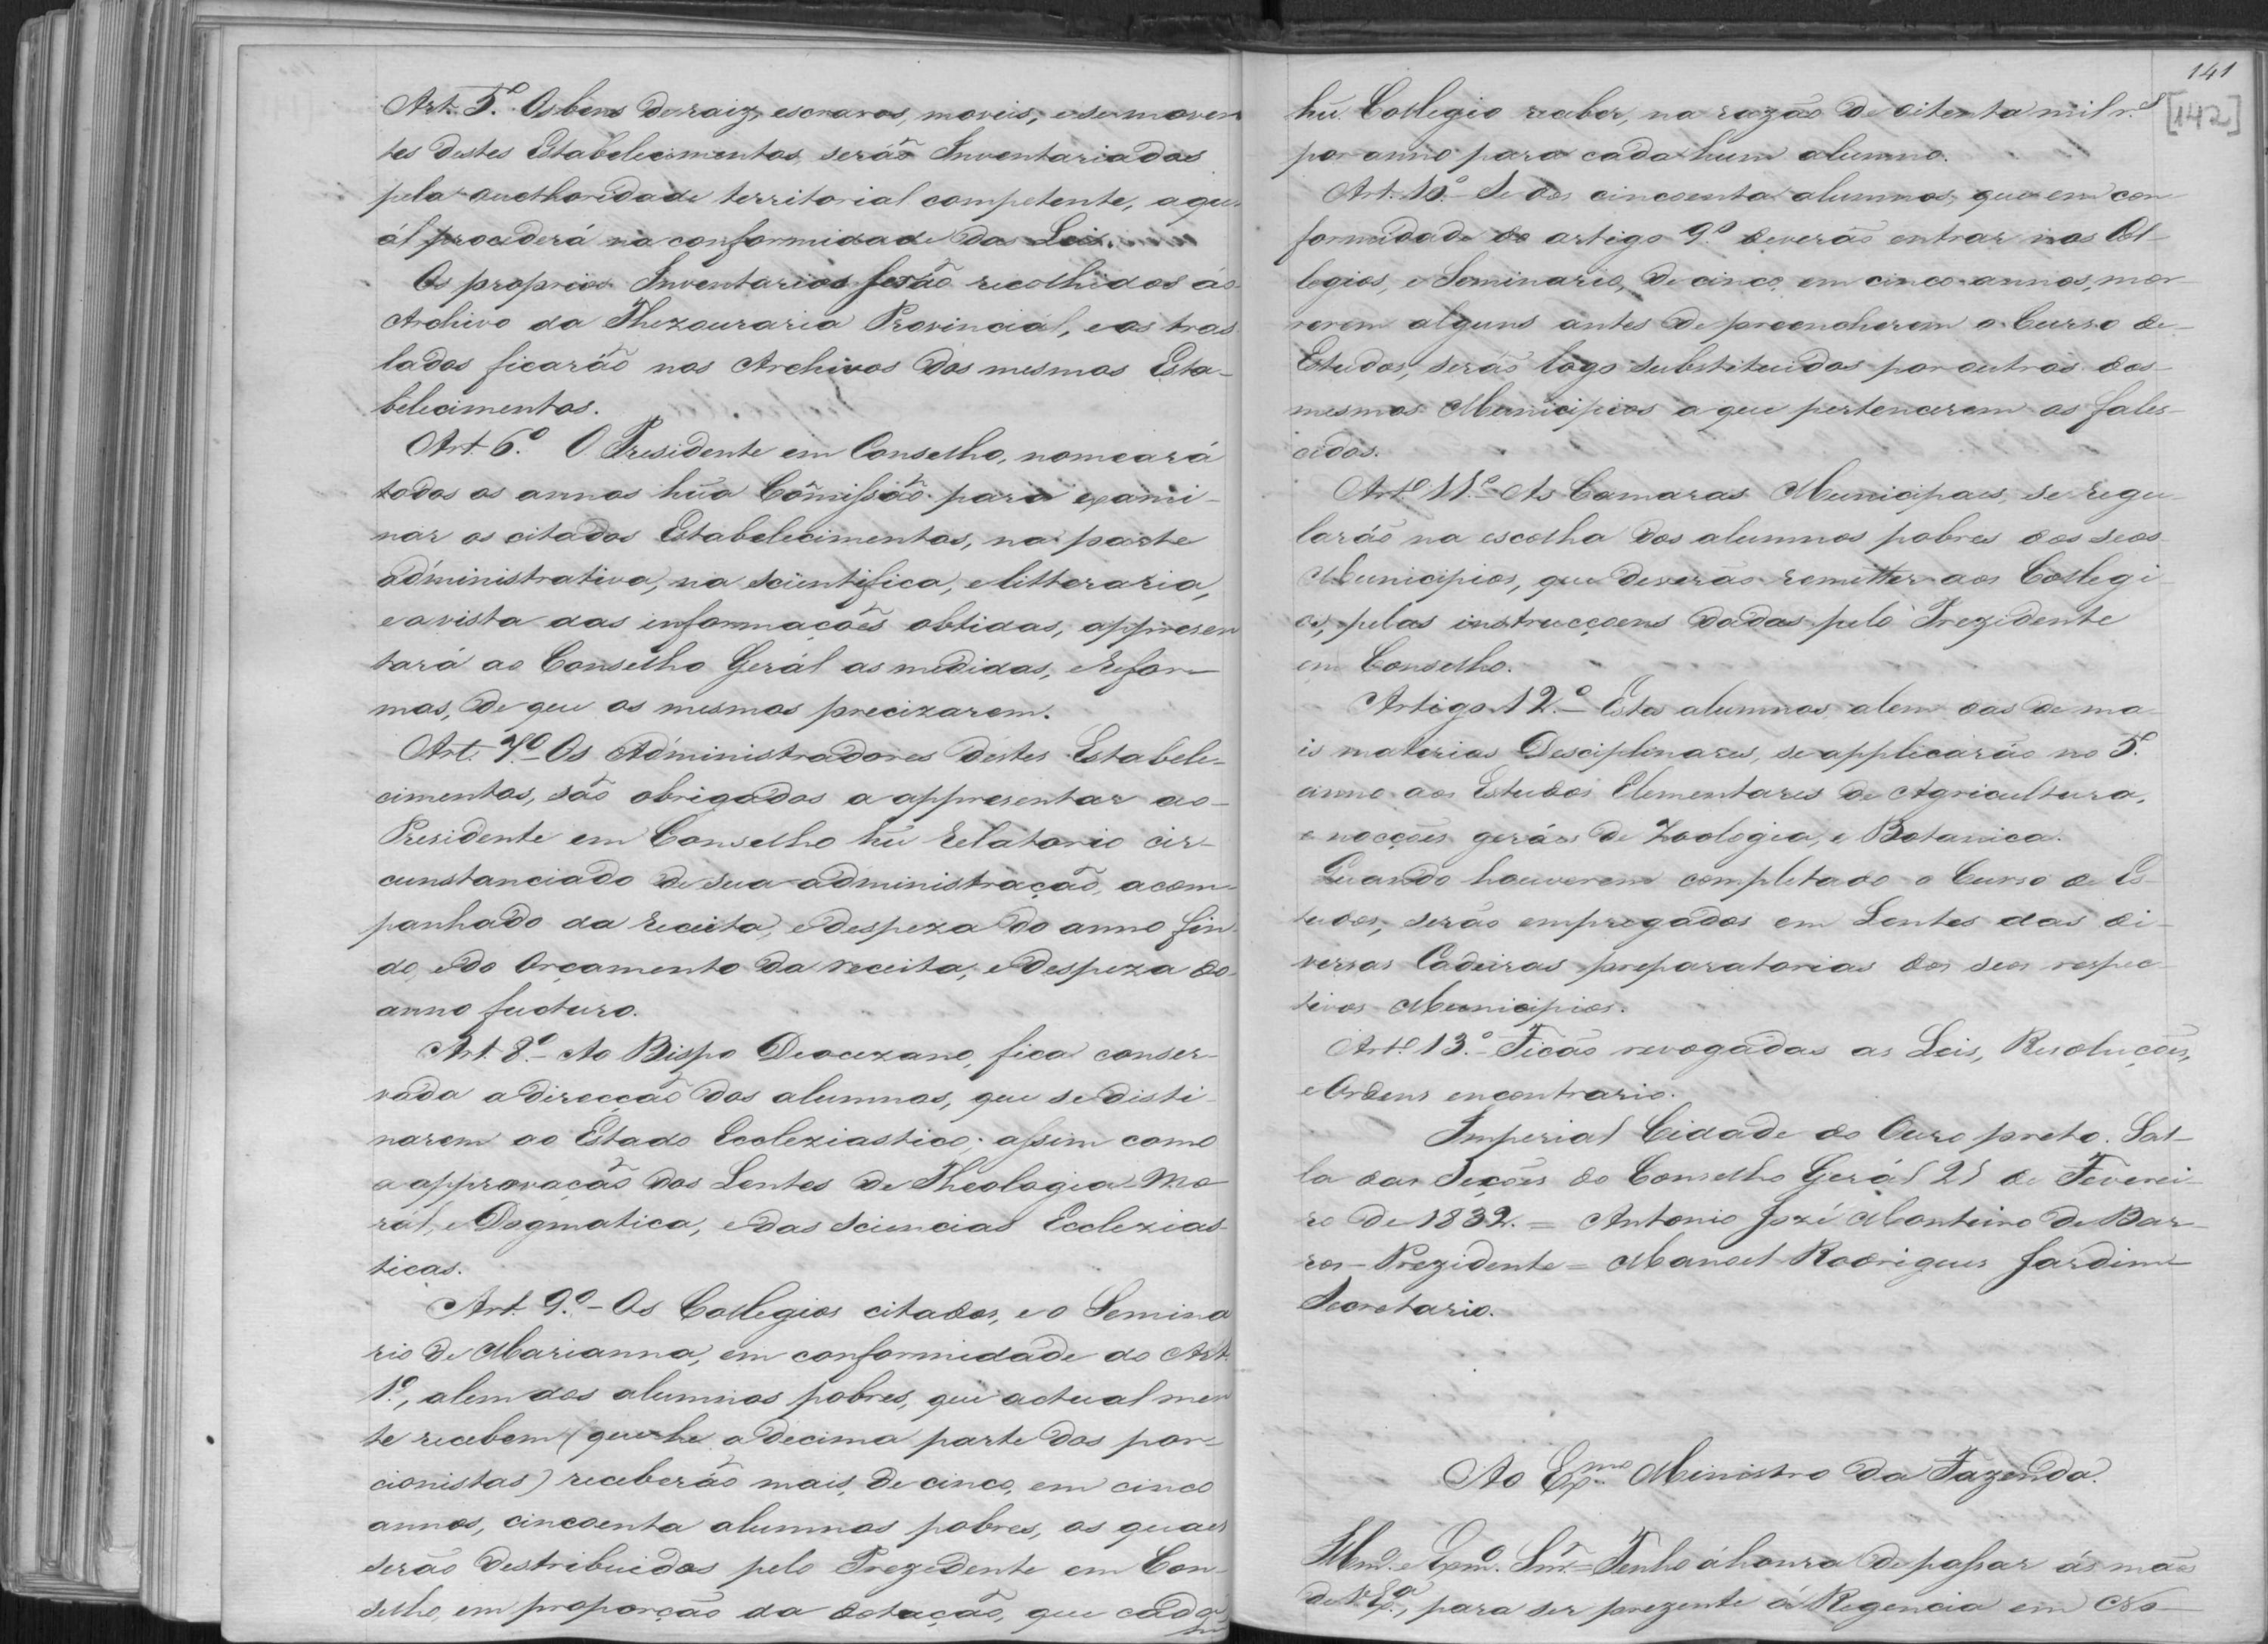 Art. 5º. Os bens de raiz, escravos, moveis, e semoven
tes destes Estabelecimentos, serão Inventariados
pela authoridade territorial competente, a qu
ál procederá na conformidade das Leis.
Os proprios Inventarios serão recolhidos áo
Archivo da Thezouraria Provinciál, e os tras
lados ficarão nos Archivos dos mesmos Esta-
belecimentos.
Art. 6º. O Presidente em Conselho, nomeará
todos os annos hũa Cõmissão para exami-
nar os citados Estabelecimentos, na parte
administrativa, na scientifica, e litteraria,
e a vista das informações obtidas, appresen
tará ao Conselho Gerál as medidas, e refor-
mas, de que os mesmos precizarem.
Art. 7º.- Os Administradores destes Estabele-
cimentos, são obrigados a appresentar ao
Presidente em Conselho hũ relatorio cir-
cunstanciado de sua administração, acom-
panhado da receita, e despeza do anno fin-
do, e do Orçamento da receita, e despeza do
anno fucturo.
Art. 8º.- Ao Bispo Diocezano, fica conser-
vada a direcção dos alumnos, que se disti-
narem ao Estado Eccleziastico; assim como
a approvação dos Lentes de Theologia Mo-
rál, e Dogmatica, e das Sciencias Ecclezias-
ticas.
Art. 9º.- Os Collegios citados, e o Semina
rio de Marianna, em conformidade do Art.
1º, alem dos alumnos pobres, que actualmen
te recebem (que he a decima parte dos por-
cionistas) receberão mais, de cinco, em cinco
annos, cincoenta alumnos pobres, os quaes
serão destribuidos pelo Prezidente em Con-
selho, em proporção da dotação, que cada
141
[142]
hũ Collegio receber, na razão de oitenta mil r.s
por anno para cada hum alumno.
Art. 10.º Se dos cincoenta alumnos, que em con
formidade do artigo 9.º deverão entrar nos Col-
legios, e Seminario, de cinco, em cinco annos, mor-
rerem alguns antes de preencherem o Curso de
Estudos, serão logo substituidos por outros dos
mesmos Municipios a que pertencerem os fales-
cidos.
Art.º 11.º- As Camaras Municipaes, se regu-
larão na escolha dos alumnos pobres dos seos
Municipios, que deverão remetter aos Collegi-
os, pelas instrucçoens dadas pelo Prezidente
em Conselho.
Artigo 12.º- Estes alumnos alem das de ma-
is materias Desciplinares, se applicarão no 5º.
anno aos Estudos Elementares de Agricultura,
e nocções geráes de Zoologia, e Botanica.
Quando houverem completado o Curso de Es-
tudos, serão empregados em Lentes das di-
versas Cadeiras preparatorias dos seos respec-
tivos Municipios.
Art.º 13.º- Ficão revogadas as Leis, Resoluções,
e Ordens encontrario.
Imperial Cidade do Ouro preto. Sal-
la das Seções do Conselho Gerál 21 de Feverei-
ro de 1832. = Antonio Jozé Monteiro de Bar-
ros - Prezidente = Manoel Rodrigues Jardim
Secretario.
Ao Exmo Ministro da Fazenda.
Illmo. e Exmo. Snr. = Tenho á honra de passar ás mãos
de V. Exª., para ser prezente á Regencia em No-